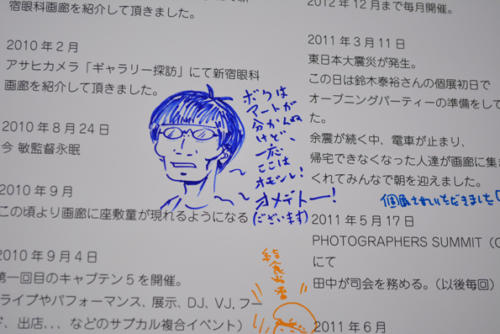 宿眼科画廊を紹介して頂きました。
2010年2月
アサヒカメラ「ギャラリー探訪」にて新宿眼科
画廊を紹介して頂きました。
2010年8月24日
今 敏監督永眠
2010年9月
この頃より画廊に座敷童が現れるようになる
2010年9月4日
第一回目のキャプテン5を開催。
ライブやパフォーマンス、展示、DJ、VJ、フー
ド、出店... などのサブカル複合イベント)
ボクは
アートが
分かんぬ
けど、
一応
ここは
オメデトー!
(ございます)
2012年12月まで毎月開催。
2011年3月11日
東日本大震災が発生。
この日は鈴木泰裕さんの個展初日で
オープニングパーティーの準備をして
た。
余震が続く中、電車が止まり、
帰宅できなくなった人達が画廊に集ま
くれてみんなで朝を迎えました。
2011年5月17日
PHOTOGRAPHERS SUMMIT (
にて
田中が司会を務める。(以後毎回)
2011年6月